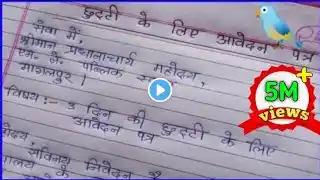 छुट्टी के लिए आवेदन - पत्र
सेवा में,
श्रीमान प्रधानाचार्य महोदय,
एस. जे. पब्लिक
भागलपुर।
विषय:- 3 दिन की छुट्टी के लिए
आवेदन पत्र
महोदय
सविनय निवेदन है
के
5M+
views